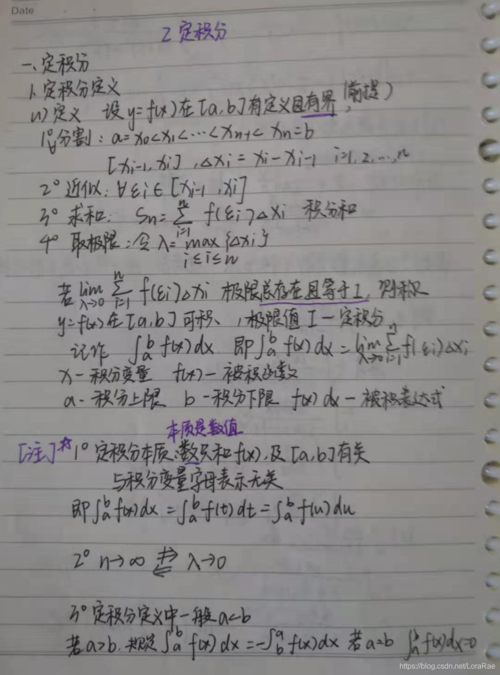 Date
2 定积分
一、定积分
1. 定积分定义
(1) 定义 设 y=f(x) 在 [a,b] 有定义且有界 (前提)
1° 分割: a=x₀<x₁<…<xₙ₋₁<xₙ=b
[xᵢ₋₁, xᵢ], △xᵢ = xᵢ - xᵢ₋₁ i=1,2,…,n
2° 近似: ∀εᵢ∈[xᵢ₋₁, xᵢ]
3° 求和: Sₙ=∑ⁿᵢ₌₁ f(εᵢ)△xᵢ 积分和
4° 取极限: 令 λ=max{△xᵢ}
1≤i≤n
若 lim λ→0 ∑ⁿᵢ₌₁ f(εᵢ)△xᵢ 极限总存在且等于 I, 则称
y=f(x) 在 [a,b] 可积, 极限值 I—定积分
记作 ∫ₐᵇ f(x)dx 即 ∫ₐᵇ f(x)dx = lim λ→0 ∑ⁿᵢ₌₁ f(εᵢ)△xᵢ
x—积分变量 f(x)—被积函数
a—积分上限 b—积分下限 f(x)dx—被积表达式
本质是数值
[注] * 1° 定积分本质: 数只和f(x), 及[a,b]有关
与积分变量字母表示无关
即 ∫ₐᵇ f(x)dx = ∫ₐᵇ f(t)dt = ∫ₐᵇ f(u)du
2° n→∞ ⇄ λ→0
3° 定积分定义中一般 a<b
若 a>b, 规定 ∫ₐᵇ f(x)dx = -∫_bᵃ f(x)dx 若 a=b ∫ₐᵇ f(x)dx=0
https://blog.csdn.net/LoraRae